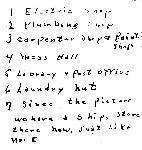 1 Electric shop
2 Plumbing shop
3 Carpenter shop & Paint
Shop
4 Mess Hall
5 Library & Post Office
6 Laundry hut
7 Since the picture
we have a Ships Store
there now, just like
No. 5